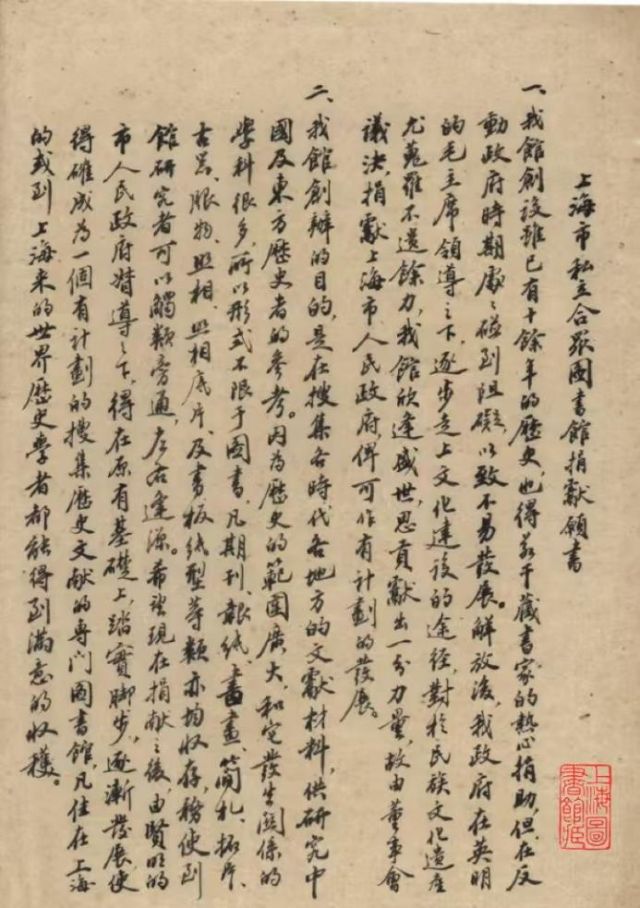 上海市私立合眾圖書館捐獻願書
一、我館創設雖已有十餘年的歷史，也得若干藏書家的熱心捐助，但在反
動政府時期處處碰到阻礙，以致不易發展。解放後，我政府在英明
的毛主席領導之下，逐步走上文化建設的途徑，對於民族文化遺產
尤蒐羅不遺餘力，我館欣逢盛世，思貢獻出一分力量，故由董事會
議決，捐獻上海市人民政府，俾可作有計劃的發展。
二、我館創辦的目的，是在搜集各時代各地方的文獻材料，供研究中
國及東方歷史者的參考。因為歷史的範圍廣大，和它發生關係的
學科很多，所以形式不限于圖書，凡期刊、報紙、書畫、簡札、拓片、
古器、服物、照相、照相底片、及書板紙型等類亦均收存，務使到
館研究者可以觸類旁通，左右逢源。希望現在捐献之後，由賢明的
市人民政府督導之下，得在原有基礎上，踏實脚步，逐漸發展，使
得確成为一個有計劃的搜集歷史文献的專门圖書館，凡住在上海
的或到上海来的世界歷史學者都能得到滿意的收穫。
上海圖
書館藏